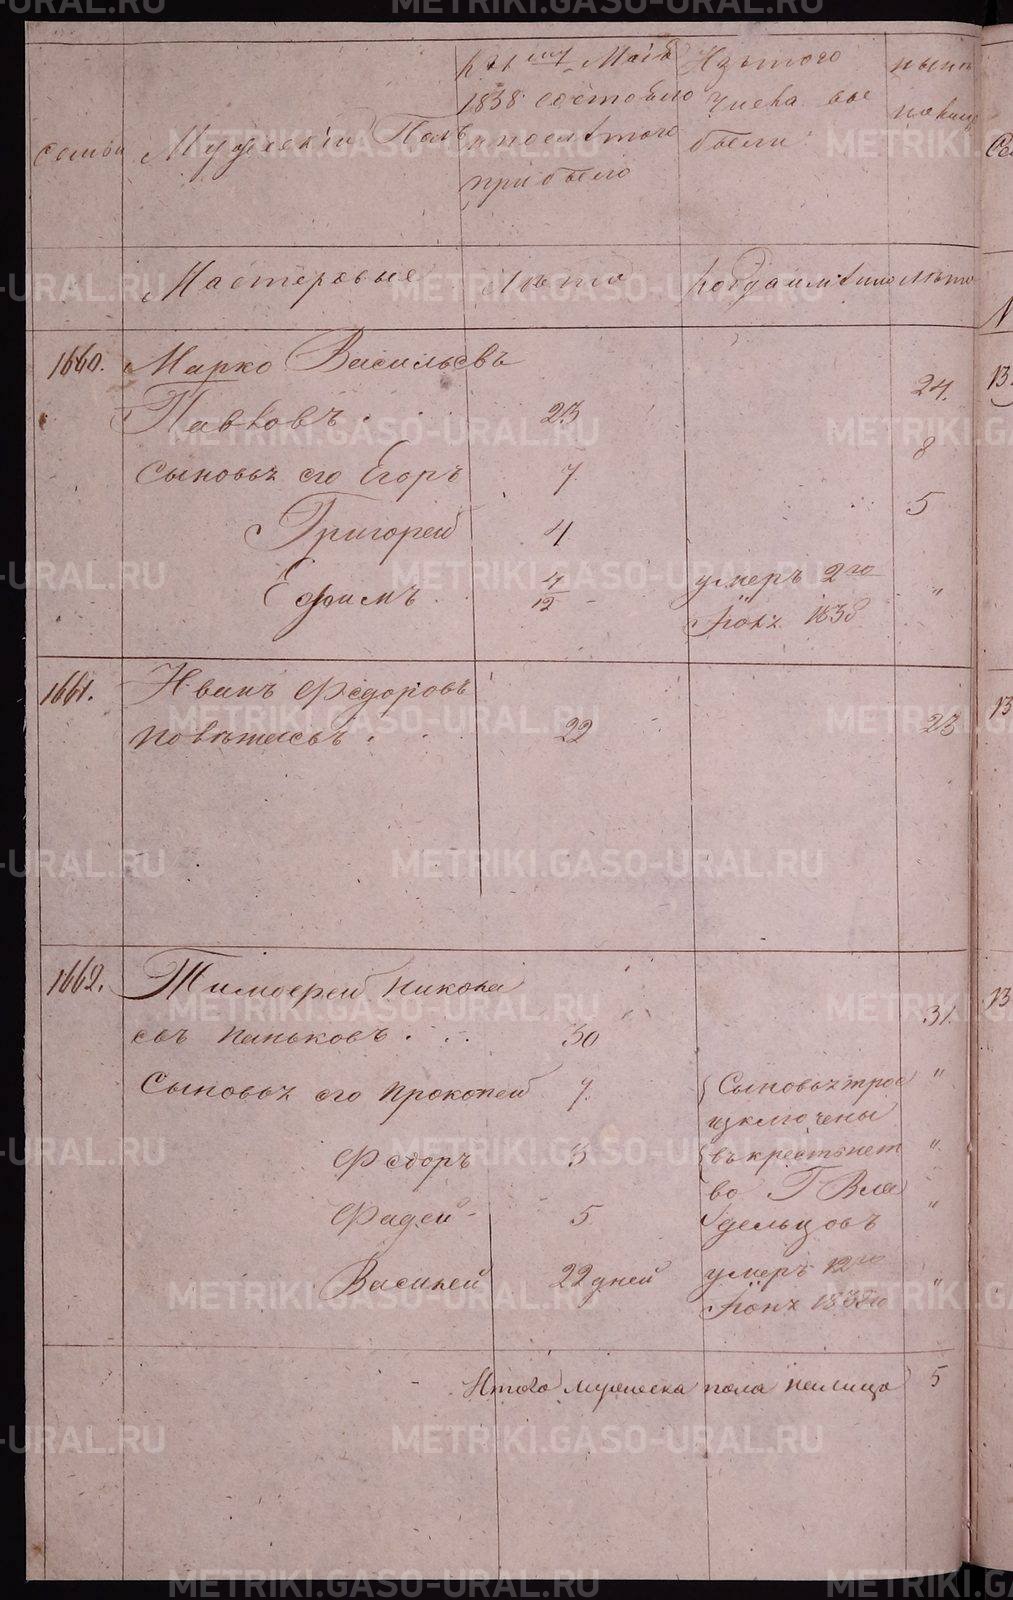 семьи
Мужескiй Полъ
къ 1му Маiя
1838 состояло
и послѣ того
прибыло
Изъ того
числа вы
были
нынѣ
на лицо
Мастеровые
лѣта
когда имянно
лѣта
1660.
Марко Васильевъ
Павковъ
23
24.
Сыновья его Егоръ
7
8
Григорей
4
5
Ефимъ
4/12
умеръ 2го
Iюня 1838
"
1661.
Иванъ Федоровъ
22
23
1662.
Тимофей Никола
евъ Паньковъ
30
31.
Сыновья его Прокопей
7.
Сыновья трое
изключены
въ крестьянст
во Г Вла
дельцовъ
"
Федоръ
3
"
Фадей
5
"
Василей
22 дней
умеръ 12го
Iюня 1838го
"
Итого мужеска пола налицо
5
METRIKI.GASO-URAL.RU